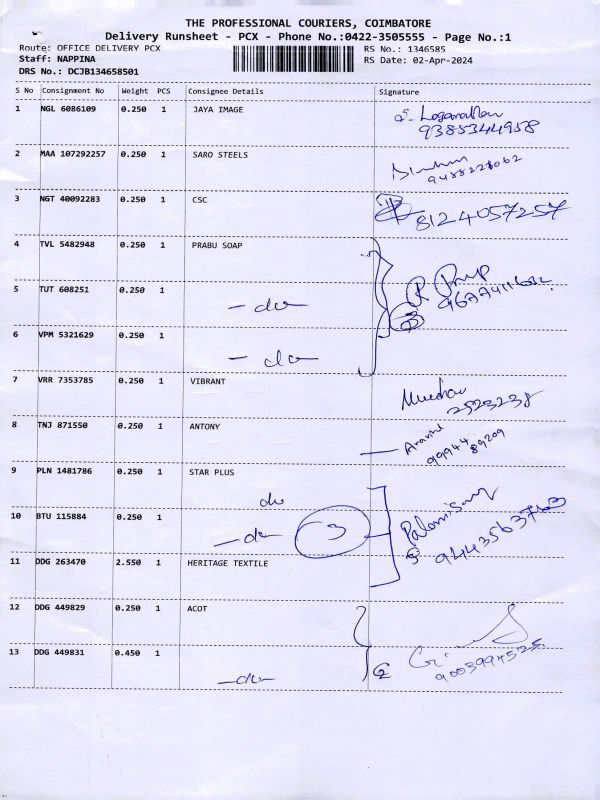 THE PROFESSIONAL COURIERS, COIMBATORE
Delivery Runsheet - PCX - Phone No.:0422-3505555 - Page No.:1
Route: OFFICE DELIVERY PCX
RS No.: 1346585
Staff: NAPPINA
RS Date: 02-Apr-2024
DRS No.: DCJB134658501
S No Consignment No Weight PCS Consignee Details Signature
1 NGL 6086109 0.250 1 JAYA IMAGE
9385344958
2 MAA 107292257 0.250 1 SARO STEELS
3 NGT 40092283 0.250 1 CSC
8124057257
4 TVL 5482948 0.250 1 PRABU SOAP
5 TUT 608251 0.250 1
- do -
3
6 VPM 5321629 0.250 1
- do -
7 VRR 7353785 0.250 1 VIBRANT
2523238
8 TNJ 871550 0.250 1 ANTONY
Aravind
99944 89209
9 PLN 1481786 0.250 1 STAR PLUS
do
10 BTU 115884 0.250 1
- do - 3
Palanisamy
11 DDG 263470 2.550 1 HERITAGE TEXTILE
12 DDG 449829 0.250 1 ACOT
13 DDG 449831 0.450 1
- do -